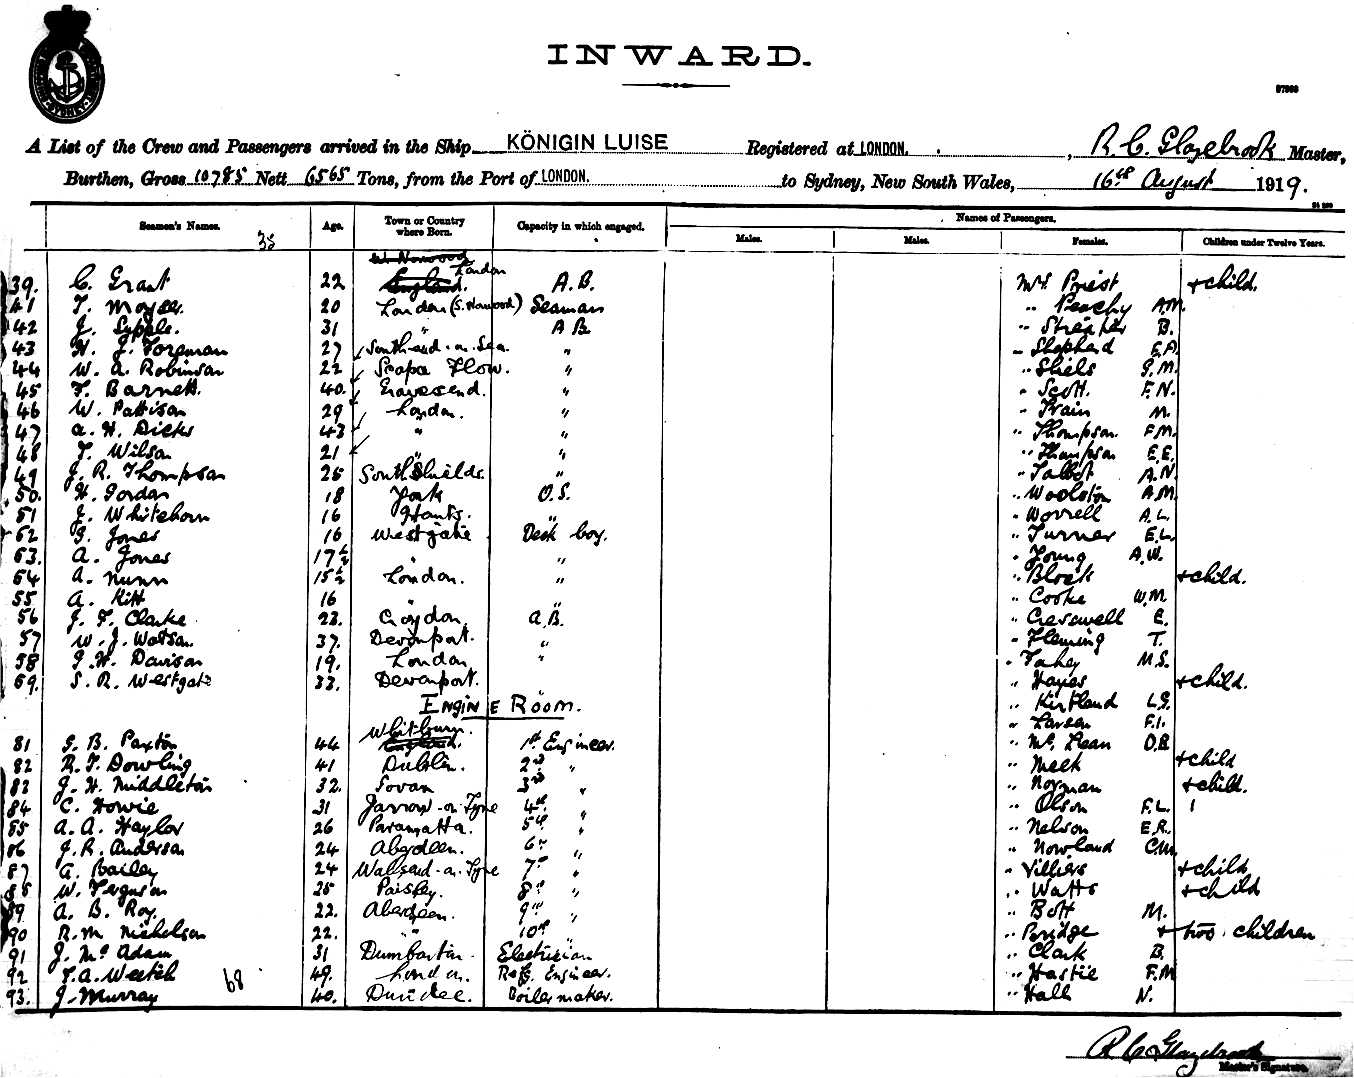 INWARD.
57966
A List of the Crew and Passengers arrived in the Ship KÖNIGIN LUISE Registered at LONDON. , R. C. Glazebrook Master,
Burthen, Gross 10785 Nett 6565 Tons, from the Port of LONDON. to Sydney, New South Wales, 16th August 1919.
Seamen's Names. Age. Town or Country where Born. Capacity in which engaged. Names of Passengers.
Males. Males. Females. Children under Twelve Years.
35
W. Norwood
39. C. Grant 22 England. London A.B. Mrs Priest + child.
41 T. Moyse. 20 London (S. Norwood) Seaman " Peachy A.M.
42 J. Sypple. 31 " A B. " Strepher B.
43 H. J. Foreman 27 South-end-on-Sea. " " Shepherd E.A.
44 W. A. Robinson 22 Scapa Flow. " " Shiels G.M.
45 F. Barnett. 40. Gravesend. " " Scott. F.N.
46 W. Pattison 29 London. " " Train M.
47 A. H. Dicks 43 " " " Thompson. F.M.
48 T. Wilson 21 " " " Thompson E.E.
49 J. R. Thompson 25 South Shields. " " Talbot A.N.
50. H. Jordan 18 York O.S. " Woolston A.M.
51 J. Whitehorn 16 Hants. " " Worrell A.L.
52 G. Jones 16 Westgate Deck boy. " Turner E.L.
53. A. Jones 17½ " " " Young A.W.
54 A. Nunn 15½ London. " " Block + child.
55 A. Kitt 16 " " Cooke W.M.
56 J. F. Clarke 23. Croydon. A.B. " Cresswell E.
57 W. J. Watson. 37. Devonport. " " Fleming T.
58 G. H. Davison 19. London " " Fahey M.S.
59. S. R. Westgate 33. Devonport. " Hayes + child.
ENGINE ROOM. " Kirtland L.G.
Whitburn. " Larsen F.I.
81 G. B. Paxton 44 England. 1st Engineer. " Mc Lean D.B.
82 R. T. Dowling 41 Dublin. 2nd " " Meek + child
83 J. H. Middleton 32. Govan 3rd " " Norman + child.
84 C. Howie 31 Jarrow-on-Tyne 4th " " Olson F.L.
85 A. A. Haylor 26 Paramatta. 5th " " Nelson E.R.
86 J. R. Anderson 24 Aberdeen. 6th " " Nowland C.M.
87 A. Bailey 24 Wallsend-on-Tyne 7th " " Villiers + child
88 W. Ferguson 25 Paisley. 8th " " Watts + child
89 A. B. Roy. 22. Aberdeen. 9th " " Bott M.
90 R. M. Nicholson 22. " " 10th " " Bridge + two children
91 J. Mc Adam 31 Dumbarton. Electrician " Clark B.
92 T. A. Weetch 49. London. Refg. Engineer. " Hastie F.M
93. J. Murray 40. Dundee. Boilermaker. " Hall N.
68
R C Glazebrook
Master's Signature.